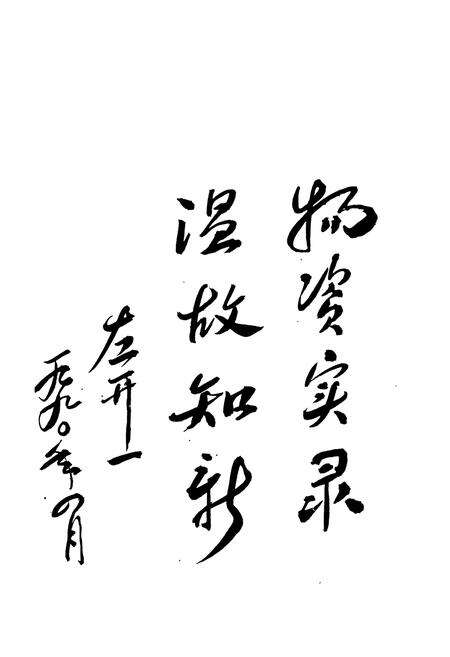 物资实录
温故知新
左开一
一九九〇年四月